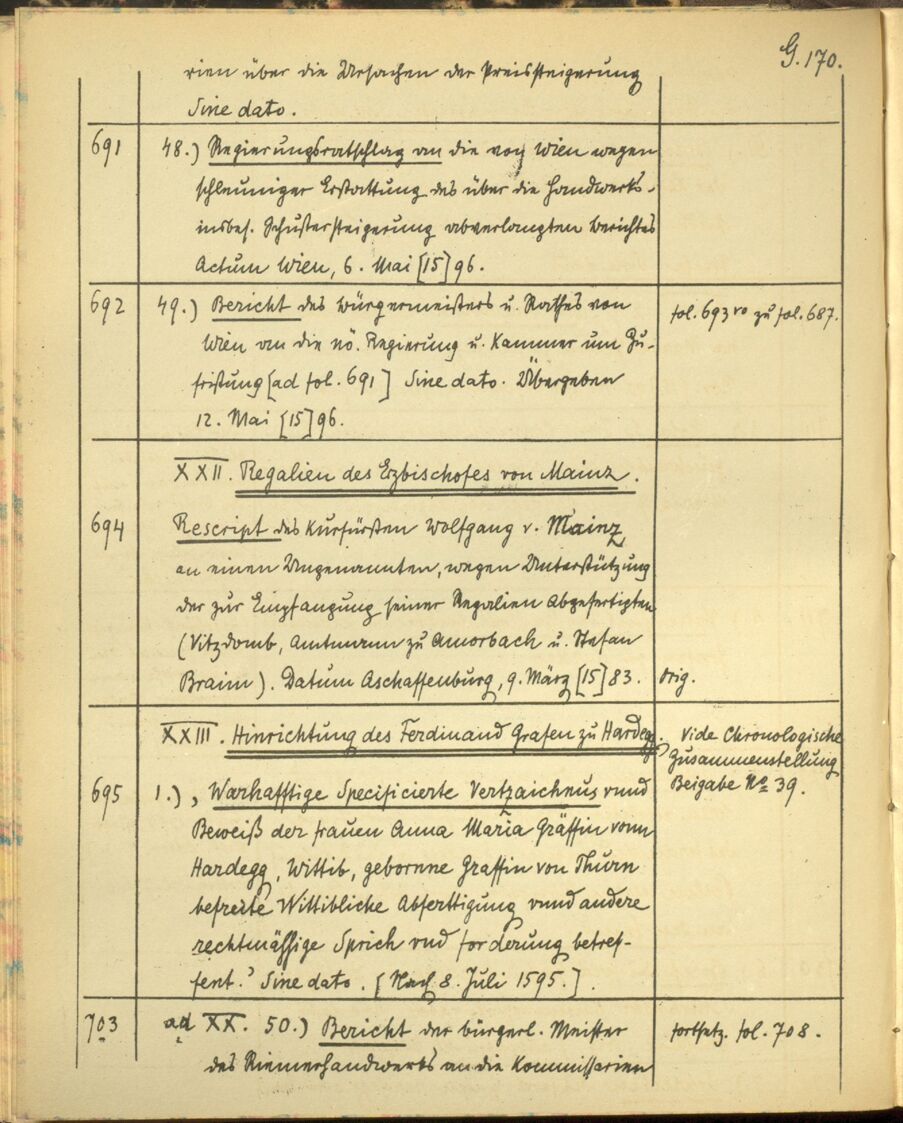 G. 170.
rien über die Ursachen der Preissteigerung
Sine dato.
691 48.) Regierungsratschlag an die von Wien wegen
schleuniger Erstattung des über die Handwerks-
insbes. Schustersteigerung abverlangten Berichtes
Actum Wien, 6. Mai [15]96.
692 49.) Bericht des Bürgermeisters u. Rathes von
Wien an die nö. Regierung u. Kammer um Zu-
fristung [ad fol. 691] Sine dato. Übergeben
12. Mai [15]96.
fol. 693 vo zu fol. 687.
XXII. Regalien des Erzbischofes von Mainz.
694 Rescript des Kurfürsten Wolfgang v. Mainz
an einen Ungenannten, wegen Unterstützung
der zur Empfangung seiner Regalien Abgefertigten
(Vitzdomb, Amtmann zu Amorbach u. Stefan
Braim). Datum Aschaffenburg, 9. März [15]83.
Orig.
XXIII. Hinrichtung des Ferdinand Grafen zu Hardegg.
Vide Chronologische
Zusammenstellung
Beigabe No 39.
695 1.) „Warhafftige Specificierte Vertzaichnus vnnd
Beweiß der frauen Anna Maria Gräffin vonn
Hardegg, Wittib, gebornne Graffin von Thurn
befreite Wittibliche Abferttigung vnnd andere
rechtmässige Sprich vnd forderung betref-
fent.' Sine dato. [Nach 8. Juli 1595.].
703 ad XX. 50.) Bericht der bürgerl. Meister
des Riemerhandwerks an die Kommissarien
fortsetz. fol. 708.